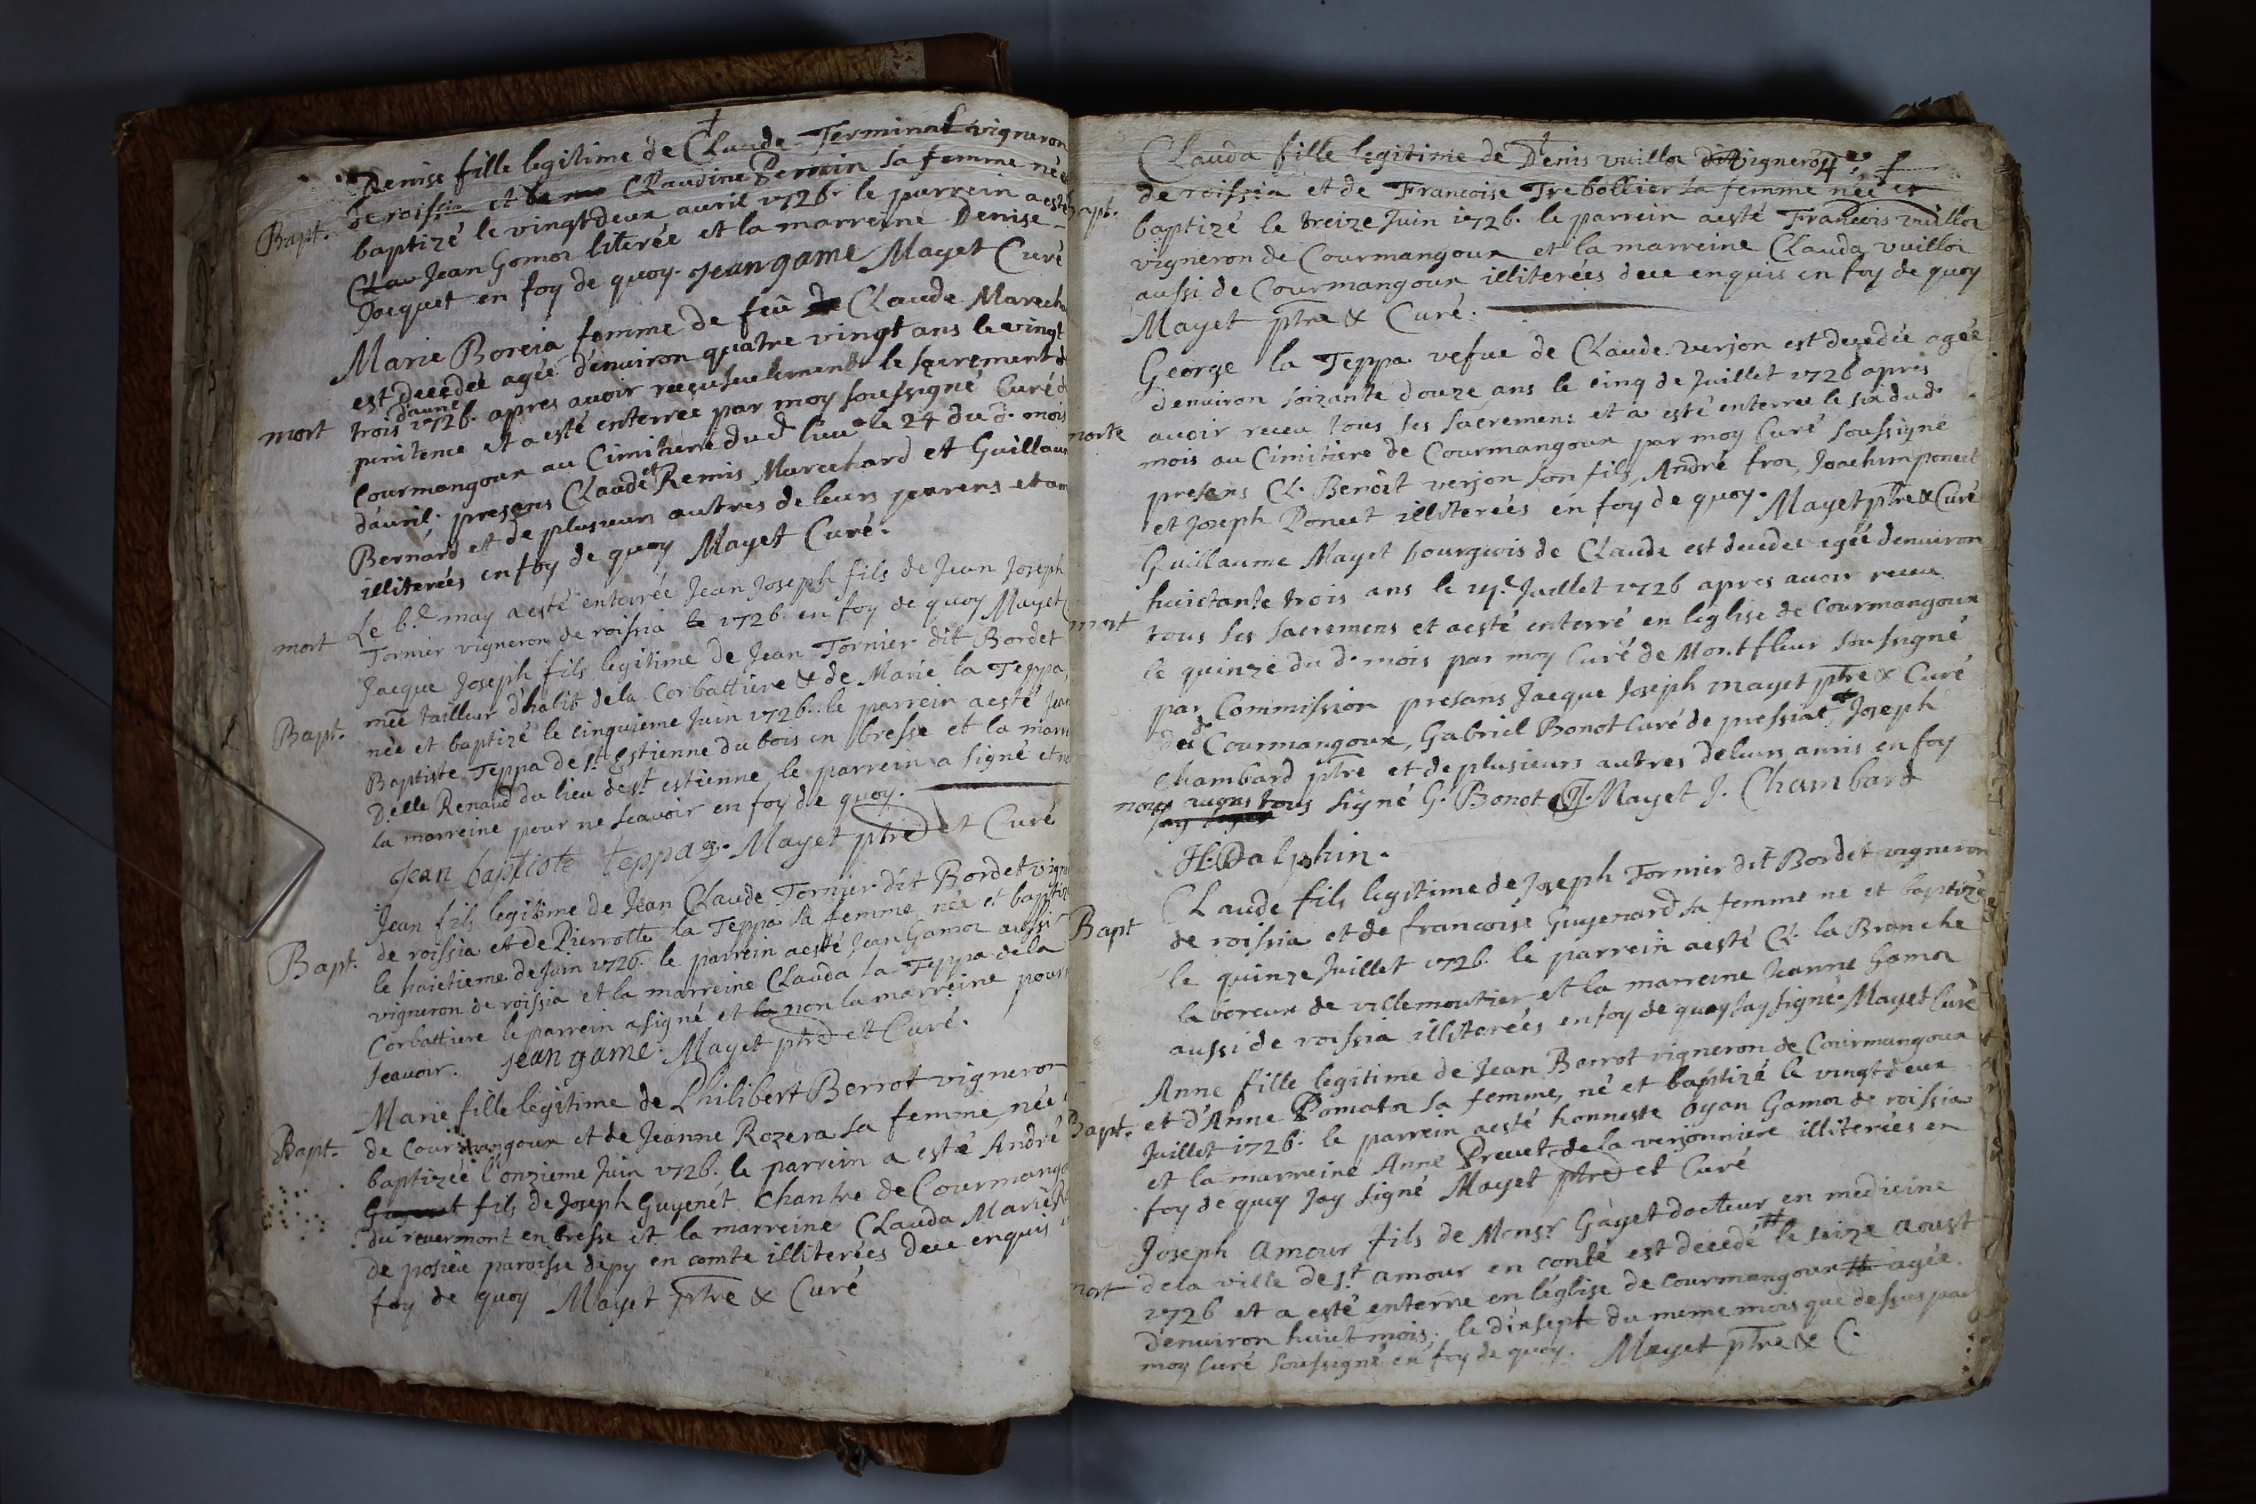 Denise fille legitime de Claude Terminal vigneron
de roissia et Claudine Pernin sa femme née
Bapt. baptizé le vingtdeux avril 1726. le parrein a esté
Jean Gomor literée et la marreine Denise
Jocquet en foy de quoy. Jean game Mayet Curé
Marie Boreia femme de feû Claude Marecha
est decedée agée d'environ quatre vingt ans le vingt
mort trois d'avril 1726. apres avoir receu seulement le sacrement de
penitence et a esté enterree par moy soussigné Curé d
Courmangoux au Cimitiere dud. lieu le 24 du d. mois
d'avril. presens Claude et Remis Marechard et Guillaum
Bernard et de plusieurs autres de leurs parens et am
illiterées en foy de quoy Mayet Curé.
mort Le 6.e may a esté enterrée Jean Joseph fils de Jean Joseph
Tornier vigneron de roissia 1726. en foy de quoy Mayet
Jacque Joseph fils legitime de Jean Tornier dit Bordet
mée tailleur d'habit de la Corbattiere & de Marie la Teppa,
Bapt. née et baptizé le cinquieme Juin 1726. le parrein a esté Jean
Baptiste Teppa de st. Estienne du bois en bresse et la marr
D.elle Renaud du lieu de st. estienne le parrein a signé et no
la marreine pour ne scavoir en foy de quoy.
Jean baptiste teppaz. Mayet ptre et Curé
Jean fils legitime de Jean Claude Tornier dit Bordet vigne
Bapt. de roissia et de Pierrotte la Teppa sa femme née et baptizé
le huictieme de Juin 1726. le parrein a esté Jean Gamor aussi
vigneron de roissia et la marreine Clauda la Teppa de la
Corbattiere le parrein a signé et non la marreine pour
scavoir. Jean game. Mayet ptre et Curé.
Marie fille legitime de Philibert Berrot vigneron
Bapt. de Courmangoux et de Jeanne Rozera sa femme, née
baptizée l'onzieme Juin 1726. le parrein a esté André
fils de Joseph Guyenét chantre de Courmango
du revermont en bresse et la marreine Clauda Marie
de posieu paroisse depy en comte illiterées deue enquis
foy de quoy Mayet ptre & Curé
Clauda fille legitime de Denis vuillor vigneron
de roissia et de Francoise Trebollier sa femme née et
Bapt. baptizé le treize Juin 1726. le parrein a esté Francois vuillor
vigneron de Courmangoux et la marreine Clauda vuillor
aussi de Courmangoux illiterées deue enquis en foy de quoy
Mayet ptre & Curé.
George la Teppa vefue de Claude verjon est decedée agée
d'environ soizante douze ans le cinq de Juillet 1726 apres
morte avoir receu tous ses sacremens et a esté enterree le six dud.
mois au Cimitiere de Courmangoux par moy Curé soussigné
presens Cl. Benoit verjon son fils, André fror, Joachim poncet
et Joseph Poncet illiterées en foy de quoy. Mayet ptre & Curé
Guillaume Mayet bourgeois de Claude est decedée egée denviron
huictante trois ans le 14.e Juillet 1726 apres avoir receu
mort tous ses sacremens et a esté enterré en leglise de Courmangoux
le quinze du d. mois par moy Curé de Montfleur soussigné
par Commission presans Jacque Joseph mayet ptre & Curé
dud. Courmangoux, Gabriel Bonot Curé de pressiat, Joseph
Chambard ptre et de plusieurs autres de leurs amis en foy
nous avons tous signé G. Bonot J. Mayet J. Chambard
H. Dalphin.
Claude fils legitime de Joseph Tornier dit Bordet vigneron
Bapt de roissia et de francoise Guyenard sa femme né et baptizé
le quinze Juillet 1726. le parrein a esté Cl. la Branche
laboreur de villemoutier et la marreine Jeanne Gamor
aussi de roissia illiterées en foy de quoy jay signé. Mayet Curé
Anne fille legitime de Jean Berrot vigneron de Courmangoux
Bapt. et d'Anne Pomator sa femme, né et baptizé le vingtdeux
Juillet 1726. le parrein a esté honneste Oyan Gamor de roissia
et la marreine Anne Prevet de la verjonniere illiterées en
foy de quoy jay signé Mayet ptre et Curé
Joseph Amour fils de Monsr. Gayet docteur en medicine
mort de la ville de st. amour en conté est decedé le seize aoust
1726 et a esté enterre en léglise de Courmangoux agée
d'environ huict mois. le dixsept du meme mois que dessus par
moy Curé soussigné en foy de quoy. Mayet ptre & C.